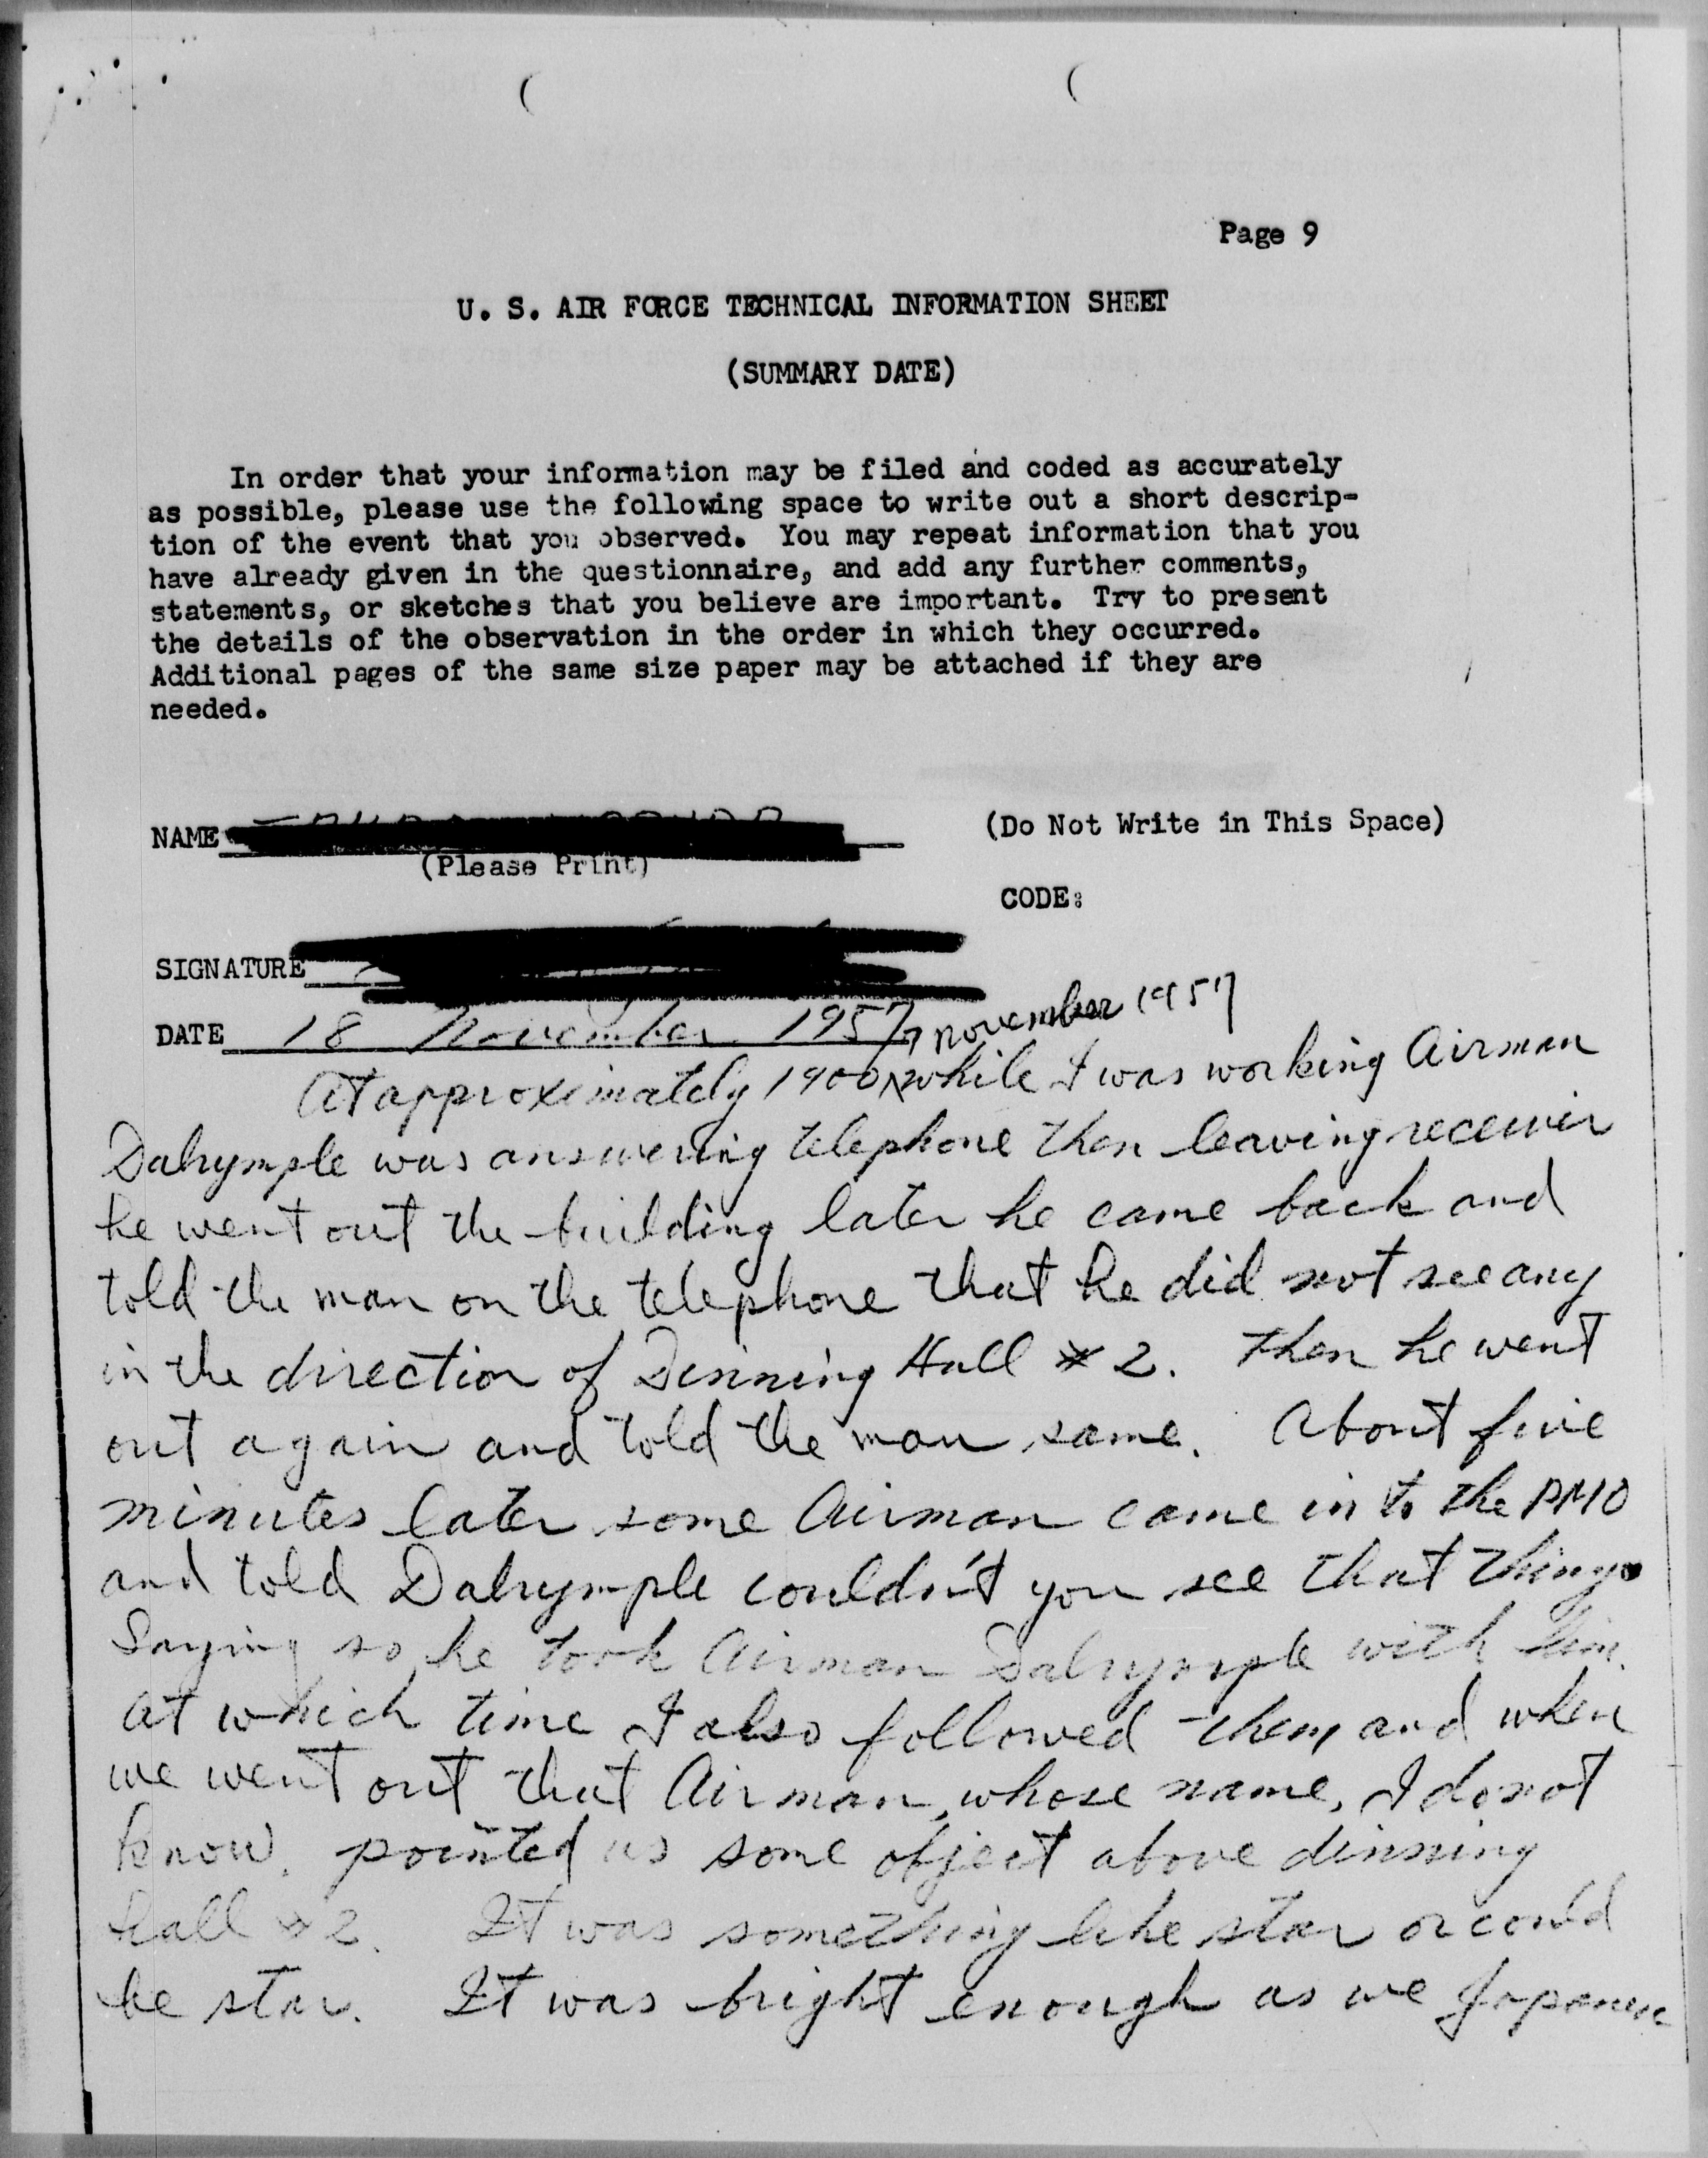 Page 9
U. S. AIR FORCE TECHNICAL INFORMATION SHEET
(SUMMARY DATE)
In order that your information may be filed and coded as accurately
as possible, please use the following space to write out a short descrip-
tion of the event that you observed. You may repeat information that you
have already given in the questionnaire, and add any further comments,
statements, or sketches that you believe are important. Try to present
the details of the observation in the order in which they occurred.
Additional pages of the same size paper may be attached if they are
needed.
NAME
(Do Not Write in This Space)
(Please Print)
CODE:
SIGNATURE
DATE 18 November 1957
7 November 1957
At approximately 1900 while I was working Airman
Dalrymple was answering telephone then leaving receiver
he went out the building later he came back and
told the man on the telephone that he did not see any
in the direction of Dinning Hall # 2. Then he went
out again and told the man same. About five
minutes later some Airman came in to the PMO
and told Dalrymple couldn't you see that thing.
Saying so, he took Airman Dalrymple with him.
At which time I also followed them and when
we went out that Airman, whose name, I do not
know, pointed us some object above dinning
hall # 2. It was something like star or could
be star. It was bright enough as we Japanese